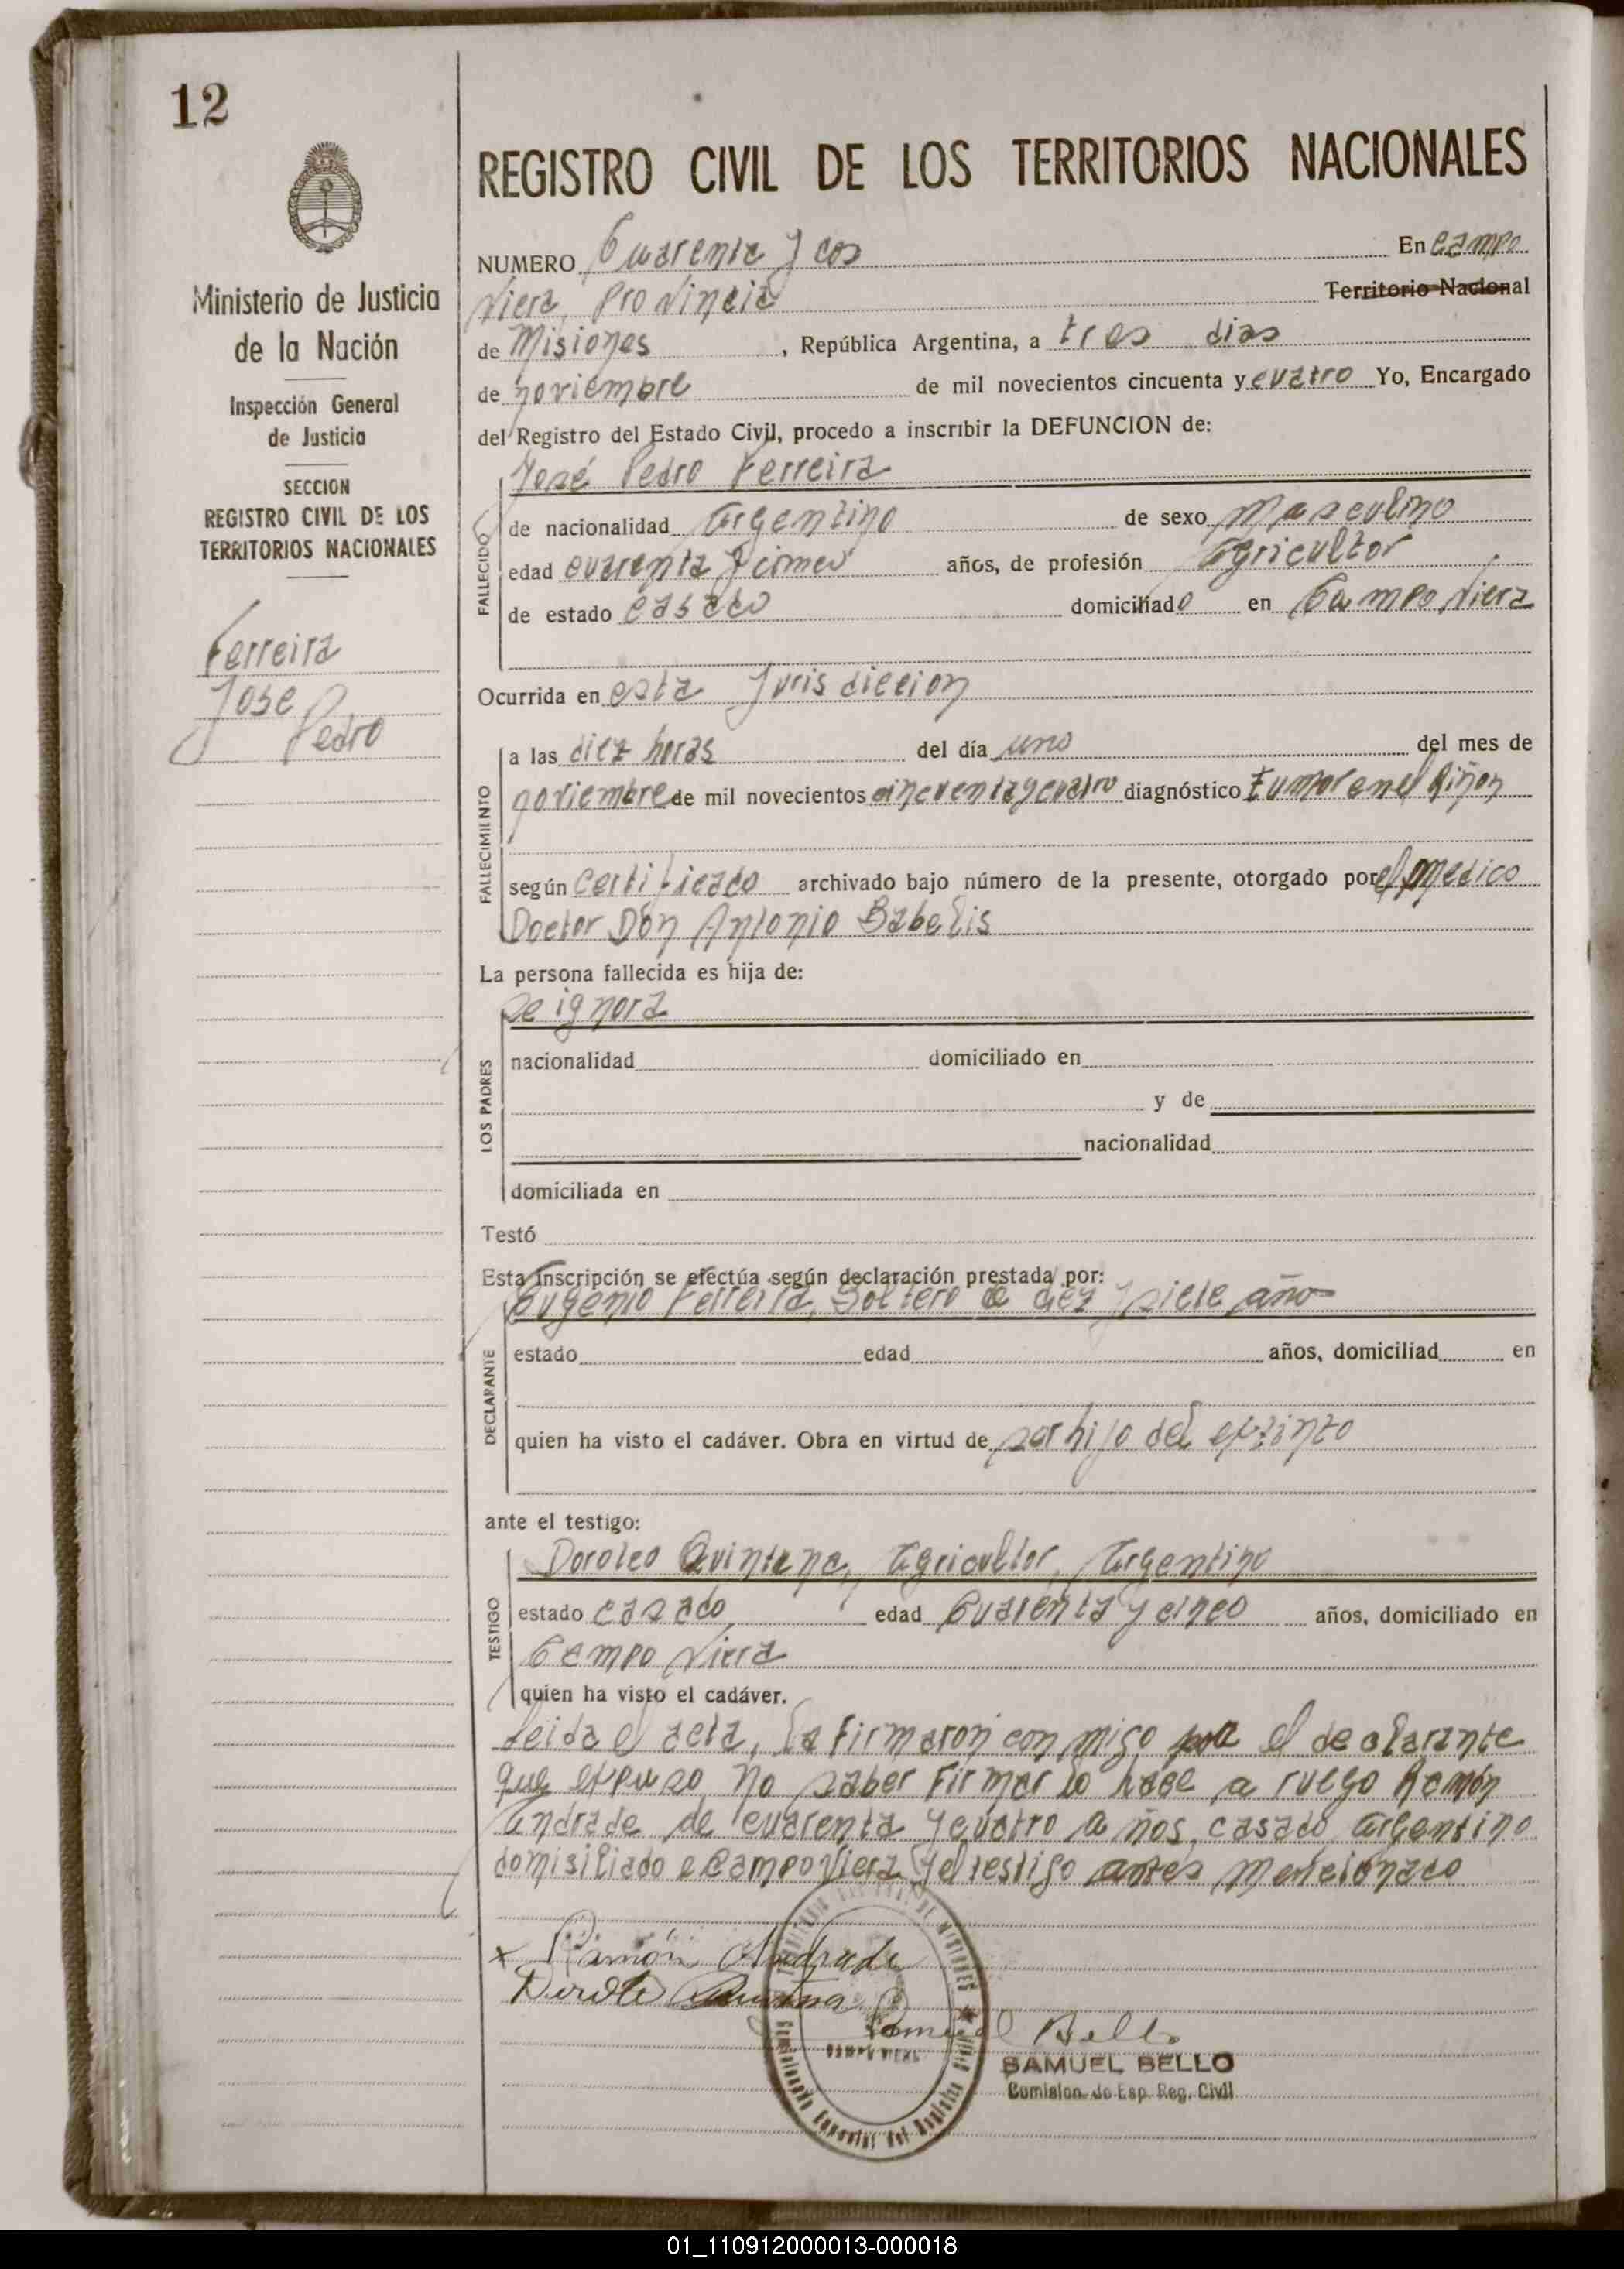 12
REGISTRO CIVIL DE LOS TERRITORIOS NACIONALES
Ministerio de Justicia
de la Nación
Inspección General
de Justicia
SECCION
REGISTRO CIVIL DE LOS
TERRITORIOS NACIONALES
Ferreira
José
Pedro
NUMERO Cuarenta y dos En Campo
Viera, Provincia Territorio Nacional
de Misiones, República Argentina, a tres dias
de noviembre de mil novecientos cincuenta y cuatro Yo, Encargado
del Registro del Estado Civil, procedo a inscribir la DEFUNCION de:
José Pedro Ferreira
FALLECIDO
de nacionalidad Argentino de sexo Masculino
edad cuarenta y años, de profesión Agricultor
de estado casado domiciliado en Campo Viera
Ocurrida en esta Jurisdiccion
FALLECIMIENTO
a las diez horas del día uno del mes de
noviembre de mil novecientos cincuenta y cuatro diagnóstico tumor en el Riñon
según Certificado archivado bajo número de la presente, otorgado por el Medico
Doctor Don Antonio Babelis
La persona fallecida es hija de:
Se ignora
LOS PADRES
nacionalidad domiciliado en
y de
nacionalidad
domiciliada en
Testó
Esta inscripción se efectúa según declaración prestada por:
Eugenio Ferreira, Soltero de diez y siete años
DECLARANTE
estado edad años, domiciliad en
quien ha visto el cadáver. Obra en virtud de ser hijo del extinto
ante el testigo:
Doroteo Quintana, Agricultor, Argentino
TESTIGO
estado casado edad Cuarenta y cinco años, domiciliado en
Campo Viera
quien ha visto el cadáver.
Leida el acta, la Firmaron con migo por el declarante
que expuso no saber Firmar lo hace a ruego Ramón
Andrade de cuarenta y cuatro años, casado, Argentino
domisiliado e Campo Viera y el testigo antes mencionado
x Ramón Andrade
Quintana
Samuel Bello
CAMPO VIERA
SAMUEL BELLO
Comision. do Esp. Reg. Civil
01_110912000013-000018